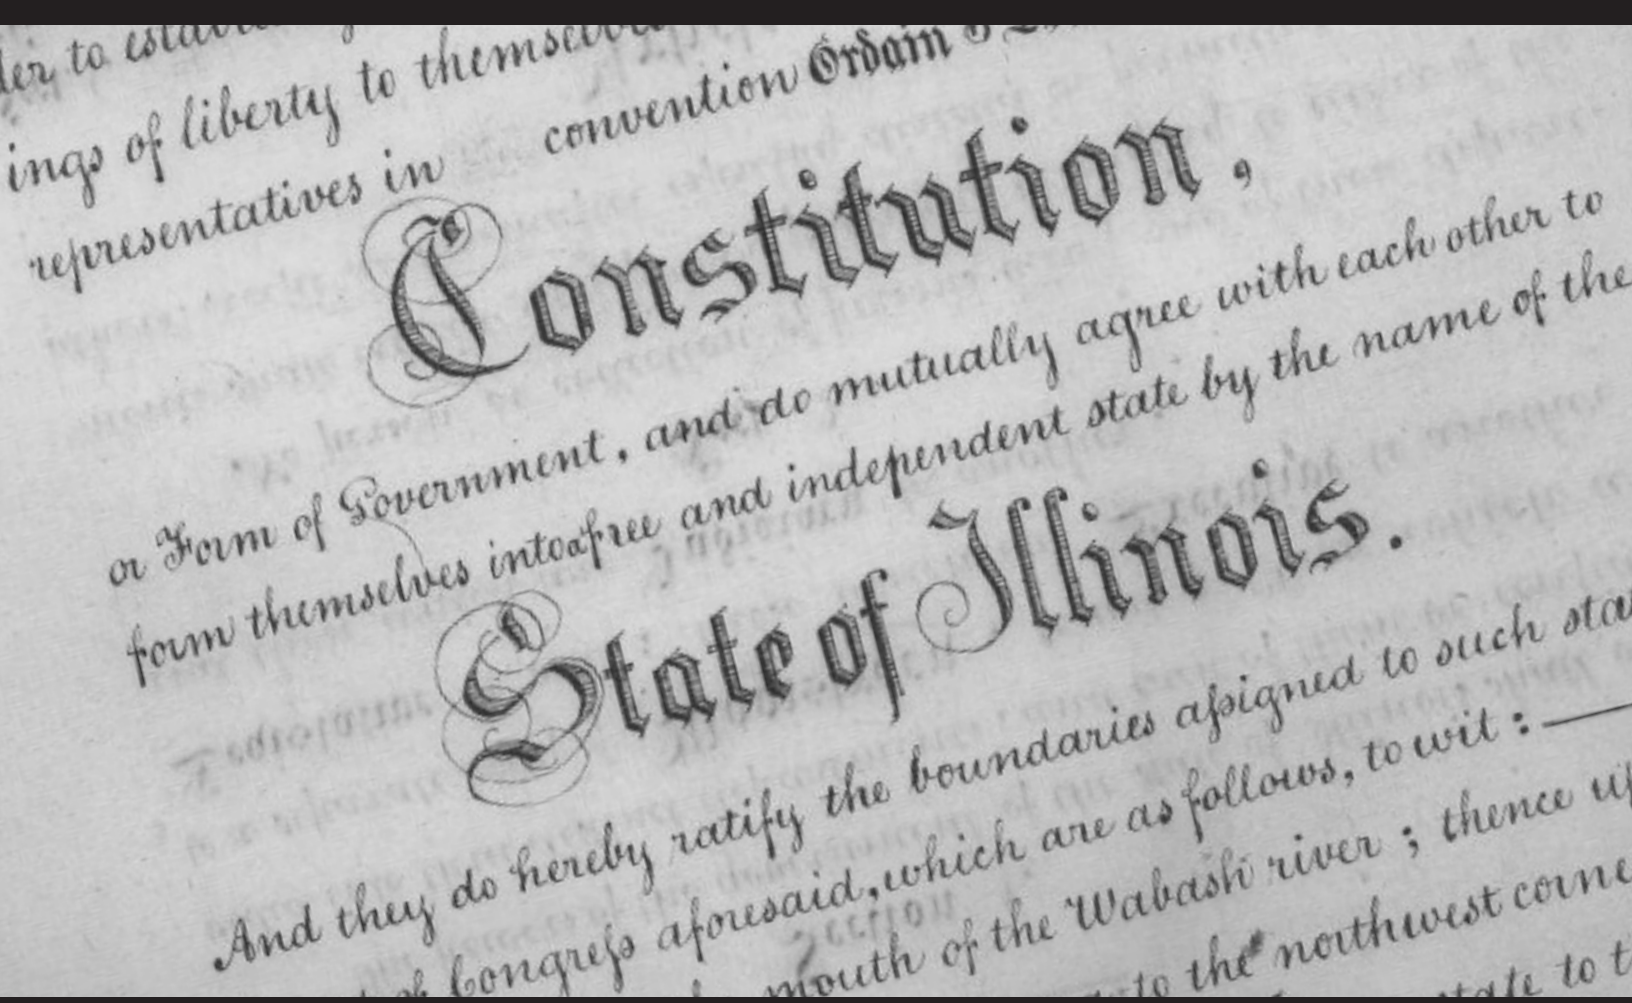 to
ings of liberty to
representatives in convention Ordain
Constitution,
or Form of Government, and do mutually agree with each other to
form themselves into a free and independent state by the name of the
State of Illinois.
And they do hereby ratify the boundaries aſsigned to such
of Congreſs aforesaid, which are as follows, to wit :
mouth of the Wabash river ; thence
to the northwest
to